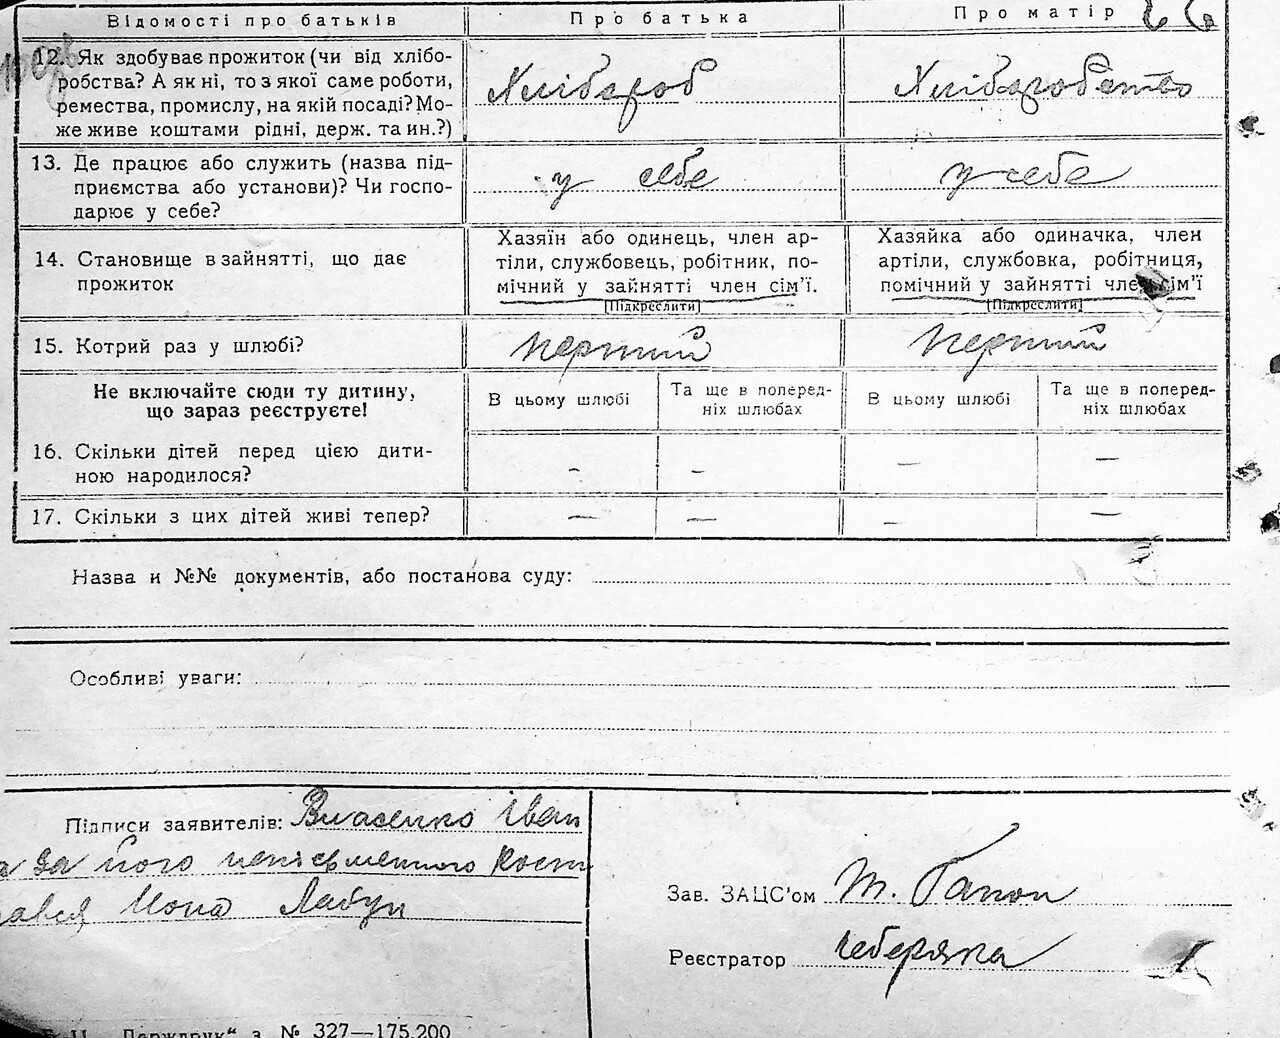 Відомості про батьків Про батька Про матір
12. Як здобуває прожиток (чи від хлібо-
робства? А як ні, то з якої саме роботи,
ремества, промислу, на якій посаді? Мо-
же живе коштами рідні, держ. та ин.?)
Хлібароб Хлібаробство
13. Де працює або служить (назва під-
приємства або установи)? Чи госпо-
дарює у себе?
у себе у себе
14. Становище в зайнятті, що дає
прожиток
Хазяїн або одинець, член ар-
тіли, службовець, робітник, по-
мічний у зайнятті член сім'ї.
[Підкреслити]
Хазяйка або одиначка, член
артіли, службовка, робітниця,
помічний у зайнятті член сім'ї
[Підкреслити]
15. Котрий раз у шлюбі? перший перший
Не включайте сюди ту дитину,
що зараз реєструєте!
В цьому шлюбі
Та ще в поперед-
ніх шлюбах
В цьому шлюбі
Та ще в поперед-
ніх шлюбах
16. Скільки дітей перед цією дити-
ною народилося?
– – – –
17. Скільки з цих дітей живі тепер? – – – –
Назва и №№ документів, або постанова суду:
Особливі уваги:
Підписи заявителів: Власенко Іван
а за його неписьменного Розпи
Лабун
Зав. ЗАЦС'ом Т. Гапон
Реєстратор Чеберяка
„Держдрук“ з. № 327—175.200